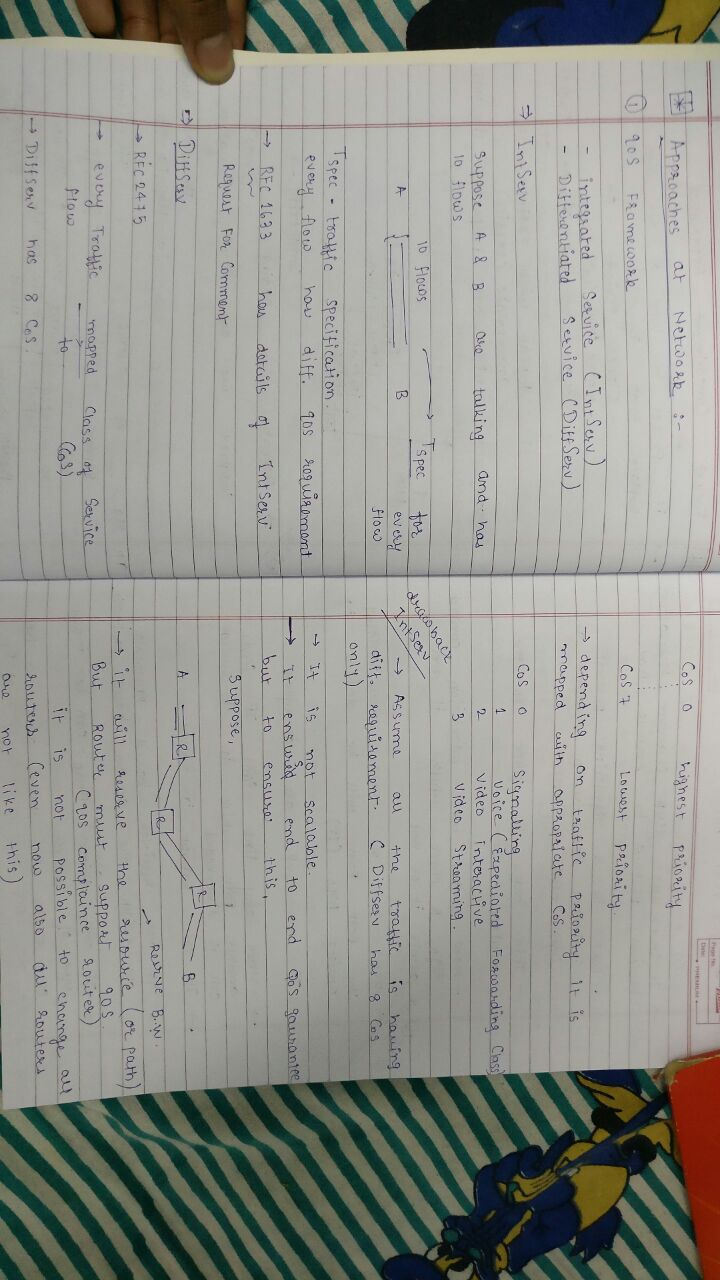 * Approaches at Network :-
① QOS Framework
- integrated Service (IntServ)
- Differentiated Service (DiffServ)
⇒ IntServ
suppose A & B are talking and has
10 flows
10 flows
A { B
Tspec for
every
flow
Tspec - traffic specification.
every flow has diff. QOS requirement
→ RFC 1633 has details of IntServ
Request For Comment
⇒ DiffServ
→ RFC 2475
→ every Traffic mapped Class of Service
flow to (CoS)
→ DiffServ has 8 CoS.
CoS 0 highest priority
CoS 7 Lowest priority
→ depending on traffic priority it is
mapped with appropriate CoS.
CoS 0 Signalling
1 Voice (Expediated Forwarding Class)
2 Video interactive
3 Video Streaming.
drawback
IntServ
→ Assume all the traffic is having
diff. requirement. (DiffServ has 8 CoS
only)
→ It is not scalable.
→ It ensured end to end QoS gaurantee
but to ensure this,
Suppose,
A R R R B
→ Reserve B.W.
→ it will reserve the resource (or path)
But Router must support QOS.
(QOS complaince router)
it is not possible to change all
routers. (even now also all routers
are not like this)
Page No.
Date: